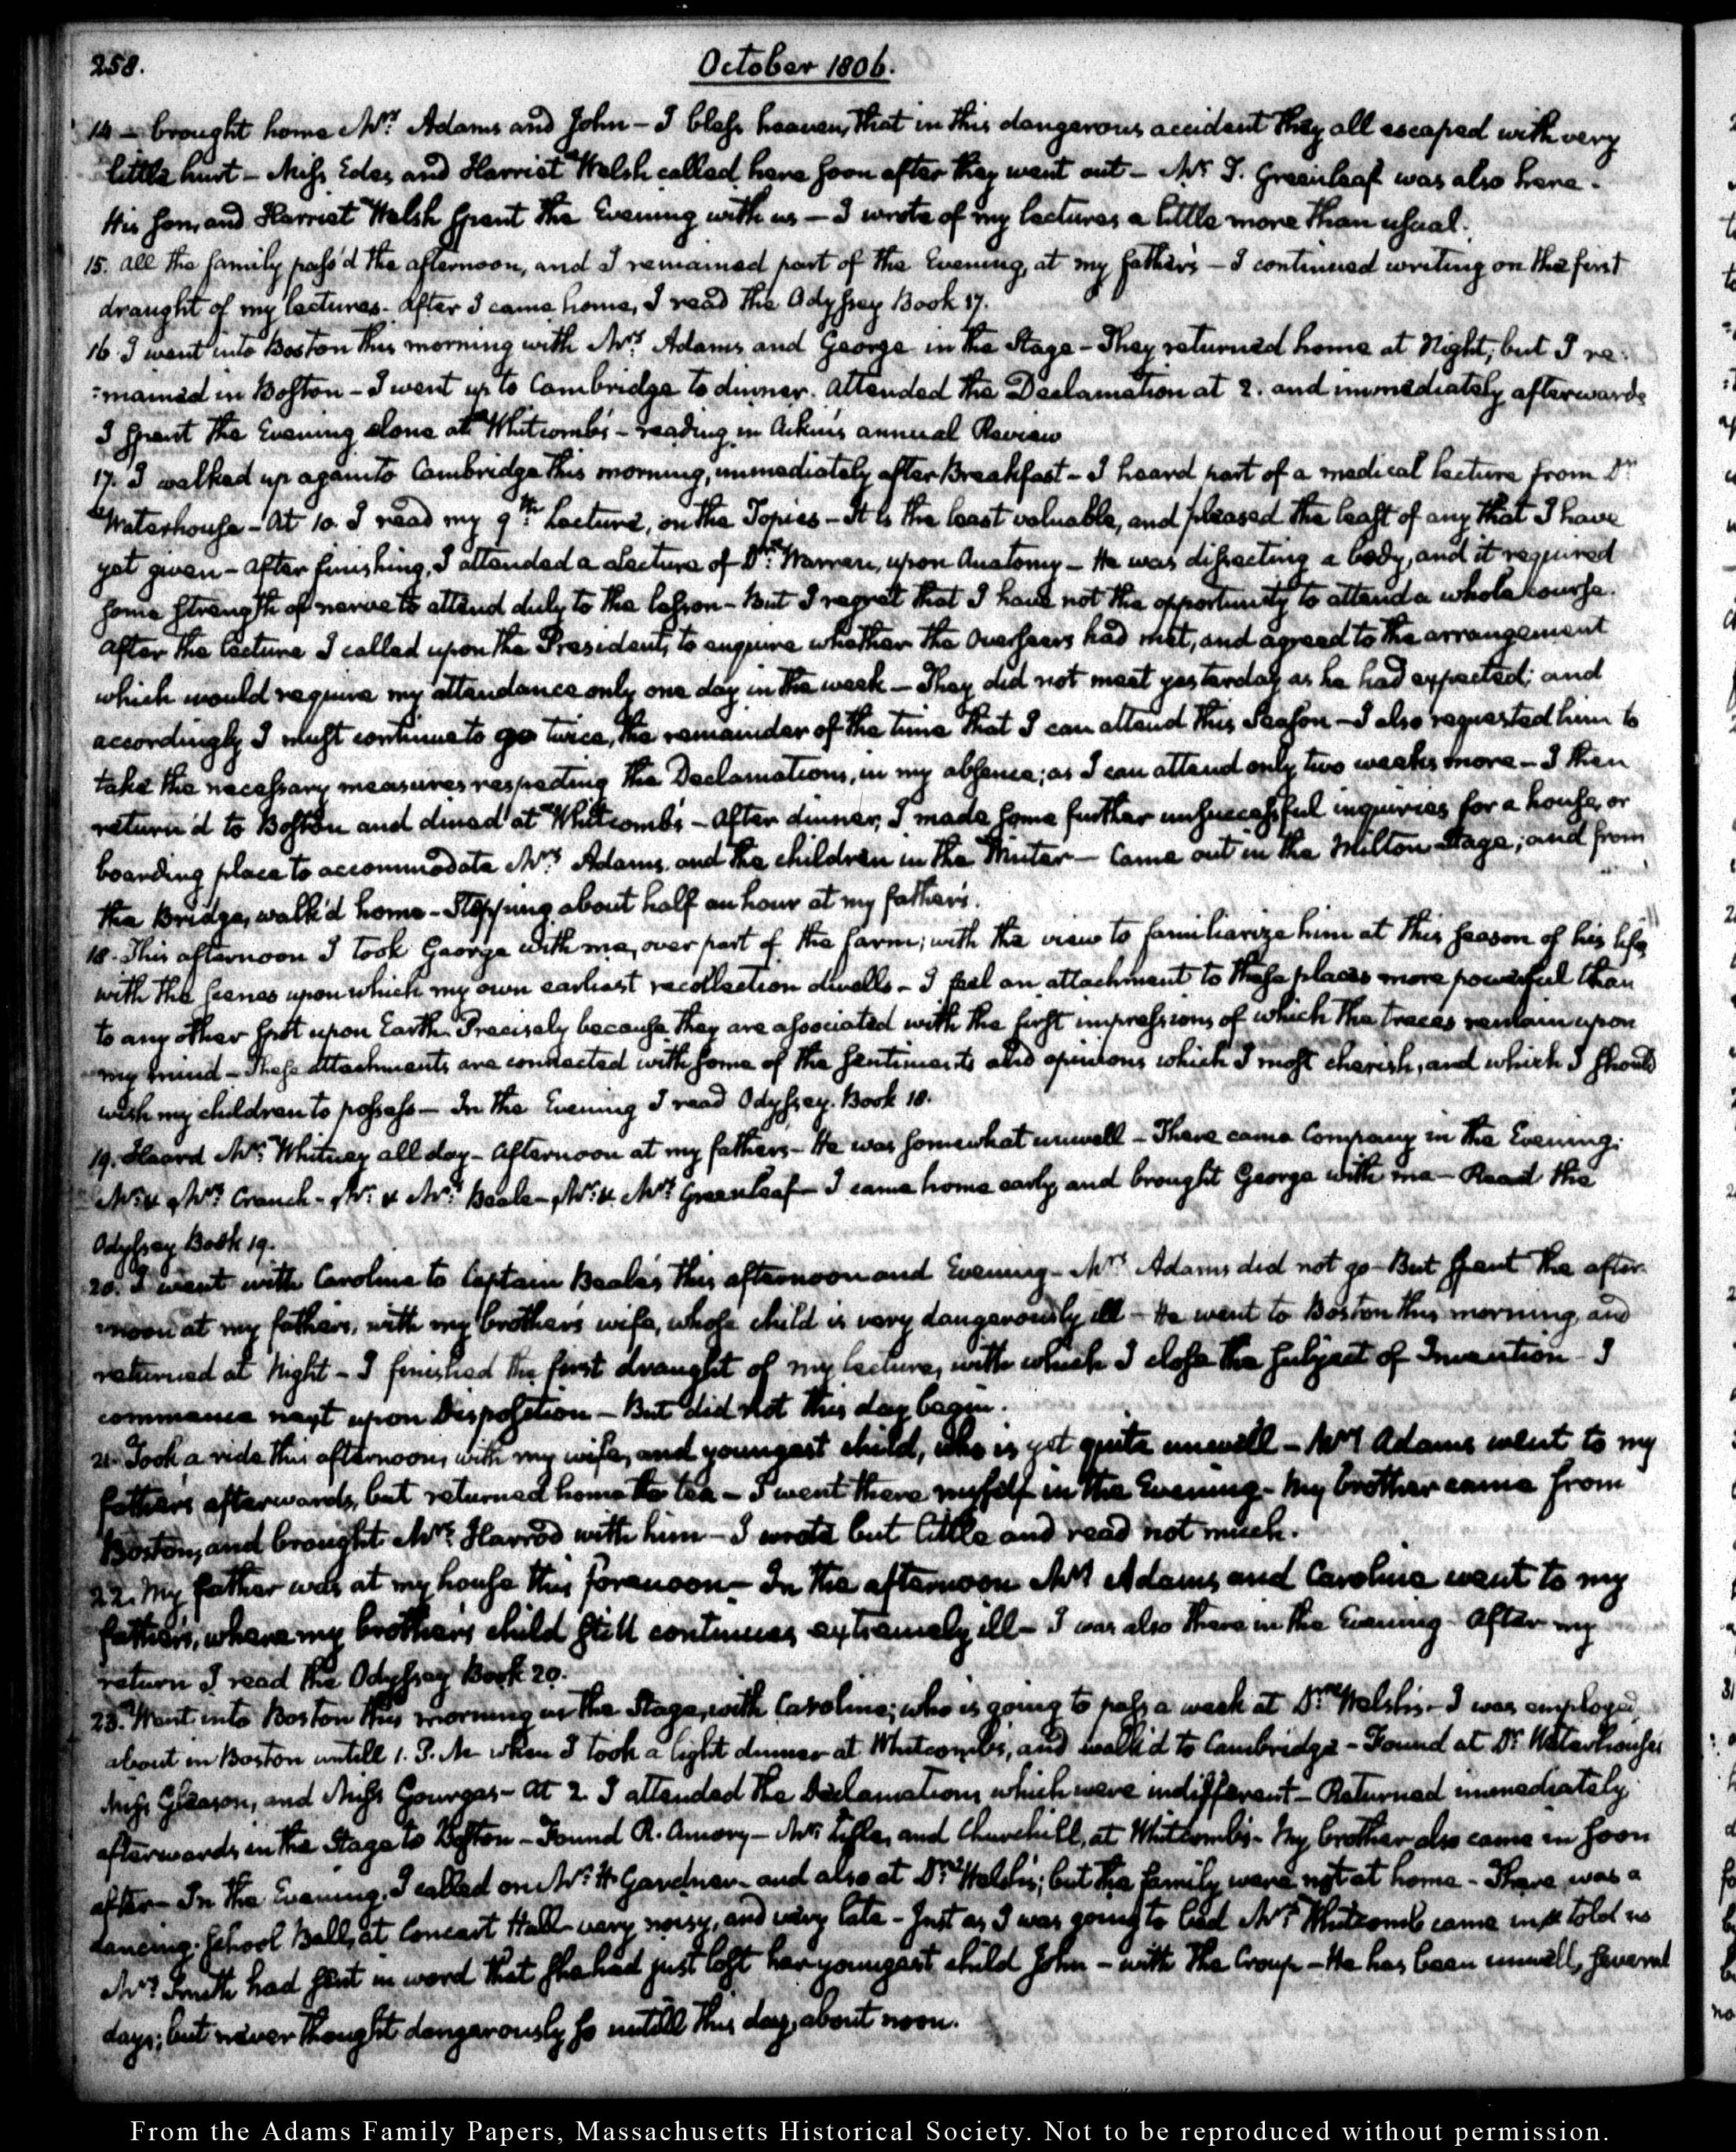 258.
October 1806.
14 – brought home Mrs. Adams and John – I bless heaven, that in this dangerous accident they all escaped with very
little hurt – Miss Edes and Harriet Welsh called here soon after they went out – Mr. T. Greenleaf was also here.
His son, and Harriet Welsh spent the Evening with us – I wrote of my lectures a little more than usual.
15. all the family pass'd the afternoon, and I remained part of the Evening, at my father's – I continued writing on the first
draught of my lectures. After I came home, I read the Odyssey Book 17.
16. I went into Boston this morning with Mrs. Adams and George in the Stage – They returned home at Night; but I re-
:mained in Boston – I went up to Cambridge to dinner. Attended the Declamation at 2. and immediately afterwards
I spent the Evening alone at Whitcomb's – reading in Aikin's annual Review
17. I walked up again to Cambridge this morning, immediately after Breakfast – I heard part of a medical lecture from Dr.
Waterhouse – At 10. I read my 9th. Lecture, on the Topics – It is the least valuable, and pleased the least of any that I have
yet given – After finishing, I attended a lecture of Dr. Warren, upon Anatomy – He was dissecting a body, and it required
some strength of nerve to attend duly to the lesson – But I regret that I have not the opportunity to attend a whole course.
After the lecture I called upon the President, to enquire whether the Overseers had met, and agreed to the arrangement
which would require my attendance only one day in the week – They did not meet yesterday as he had expected; and
accordingly I must continue to go twice, the remainder of the time that I can attend this Season – I also requested him to
take the necessary measures respecting the Declamations, in my absence; as I can attend only two weeks more – I then
return'd to Boston and dined at Whitcomb's – After dinner, I made some further unsuccessful inquiries for a house, or
boarding place to accommodate Mrs. Adams, and the children in the Winter – Came out in the Milton Stage; and from
the Bridge, walk'd home – Stopping about half an hour at my father's.
18. This afternoon I took George with me, over part of the farm; with the view to familiarize him at this season of his life,
with the scenes upon which my own earliest recollection dwells – I feel an attachment to these places more powerful than
to any other spot upon Earth. Precisely because they are associated with the first impressions of which the traces remain upon
my mind – These attachments are connected with some of the sentiments and opinions which I most cherish, and which I should
wish my children to possess – In the Evening I read Odyssey. Book 18.
19. Heard Mr. Whitney all day – Afternoon at my father's – He was somewhat unwell – There came Company in the Evening.
Mr. & Mrs. Cranch – Mr. & Mrs. Beale – Mr. & Mrs. Greenleaf – I came home early, and brought George with me – Read the
Odyssey Book 19.
20. I went with Caroline to Captain Beale's this afternoon and Evening – Mrs. Adams did not go – But spent the after-
:noon at my father's, with my brother's wife, whose child is very dangerously ill – He went to Boston this morning, and
returned at Night – I finished the first draught of my lecture, with which I close the subject of Invention – I
commence next upon Disposition – But did not this day begin.
21. Took a ride this afternoon, with my wife, and youngest child, who is yet quite unwell – Mrs. Adams went to my
father's afterwards, but returned home to tea – I went there myself in the Evening – My brother came from
Boston, and brought Mrs. Harrod with him – I wrote but little and read not much.
22. My father was at my house this forenoon – In the afternoon Mrs. Adams and Caroline went to my
father's, where my brother's child still continues extremely ill – I was also there in the Evening – After my
return I read the Odyssey Book 20.
23. Went into Boston this morning in the Stage, with Caroline; who is going to pass a week at Dr. Welsh's – I was employed
about in Boston untill 1. P.M. when I took a light dinner at Whitcomb's, and walk'd to Cambridge – Found at Dr. Waterhouse's
Miss Gleason, and Miss Gourgas – At 2. I attended the Declamations, which were indifferent – Returned immediately
afterwards in the Stage to Boston – Found R. Amory – Mr. and Churchill, at Whitcomb's – My brother also came in soon
after – In the Evening, I called on Mr. H. Gardner – and also at Dr. Welsh's; but the family were not at home – There was a
dancing-School Ball, at Concert Hall – very noisy, and very late – Just as I was going to bed Mrs. Whitcomb came in, & told us
Mrs. Smith had sent in word that she had just lost her youngest child John – with the Croup – He has been unwell, several
days; but never thought dangerously so untill this day, about noon.
From the Adams Family Papers, Massachusetts Historical Society. Not to be reproduced without permission.